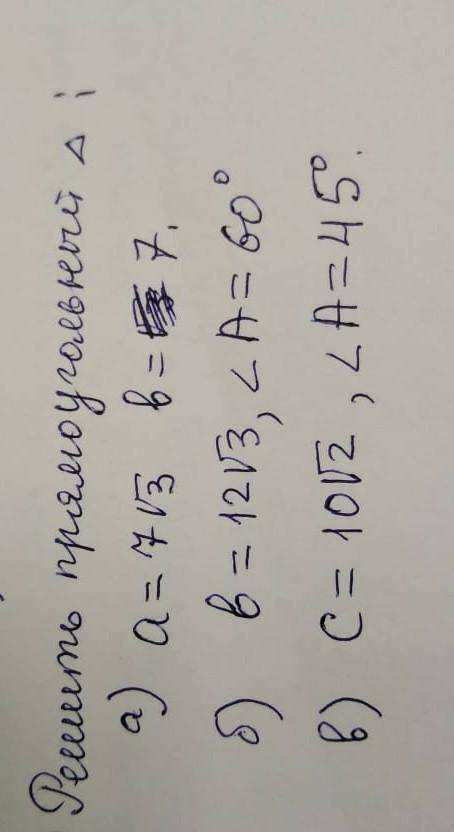 Решить прямоугольный △ :
а) a = 7√3 b = 7.
б) b = 12√3, ∠A = 60°
в) c = 10√2, ∠A = 45°.